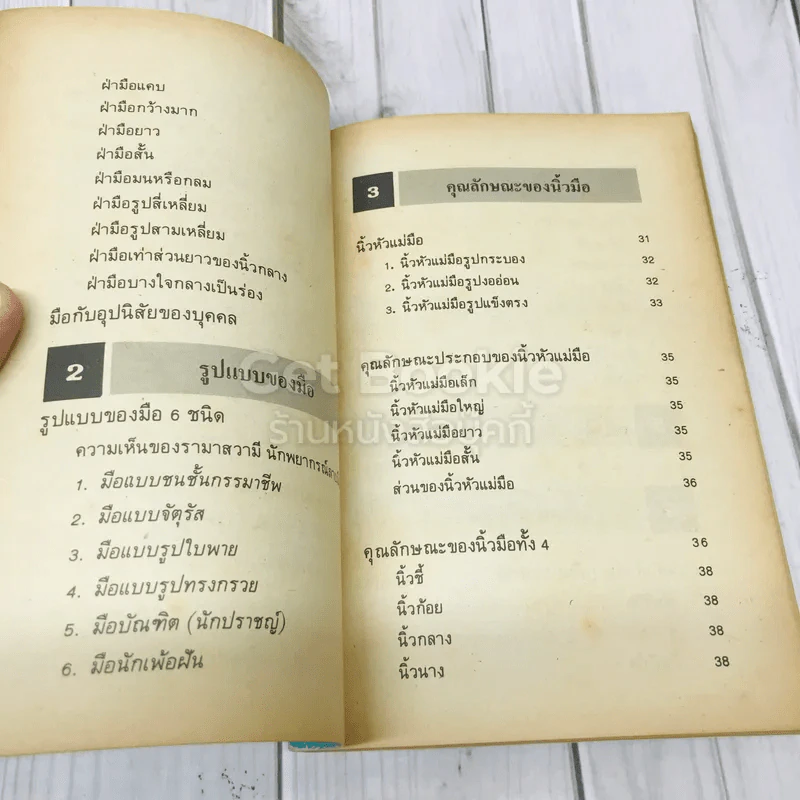 ฝ่ามือแคบ
ฝ่ามือกว้างมาก
ฝ่ามือยาว
ฝ่ามือสั้น
ฝ่ามือมนหรือกลม
ฝ่ามือรูปสี่เหลี่ยม
ฝ่ามือรูปสามเหลี่ยม
ฝ่ามือเท่าส่วนยาวของนิ้วกลาง
ฝ่ามือบางใจกลางเป็นร่อง
มือกับอุปนิสัยของบุคคล
2 รูปแบบของมือ
รูปแบบของมือ 6 ชนิด
ความเห็นของรามาสวามี นักพยากรณ์
1. มือแบบชนชั้นกรรมาชีพ
2. มือแบบจัตุรัส
3. มือแบบรูปใบพาย
4. มือแบบรูปทรงกรวย
5. มือบัณฑิต (นักปราชญ์)
6. มือนักเพ้อฝัน
3 คุณลักษณะของนิ้วมือ
นิ้วหัวแม่มือ 31
1. นิ้วหัวแม่มือรูปกระบอง 32
2. นิ้วหัวแม่มือรูปงออ่อน 32
3. นิ้วหัวแม่มือรูปแข็งตรง 33
คุณลักษณะประกอบของนิ้วหัวแม่มือ 35
นิ้วหัวแม่มือเล็ก 35
นิ้วหัวแม่มือใหญ่ 35
นิ้วหัวแม่มือยาว 35
นิ้วหัวแม่มือสั้น 35
ส่วนของนิ้วหัวแม่มือ 36
คุณลักษณะของนิ้วมือทั้ง 4 36
นิ้วชี้ 38
นิ้วก้อย 38
นิ้วกลาง 38
นิ้วนาง 38
Get Bookie
ร้านหนังสือบุคกี้